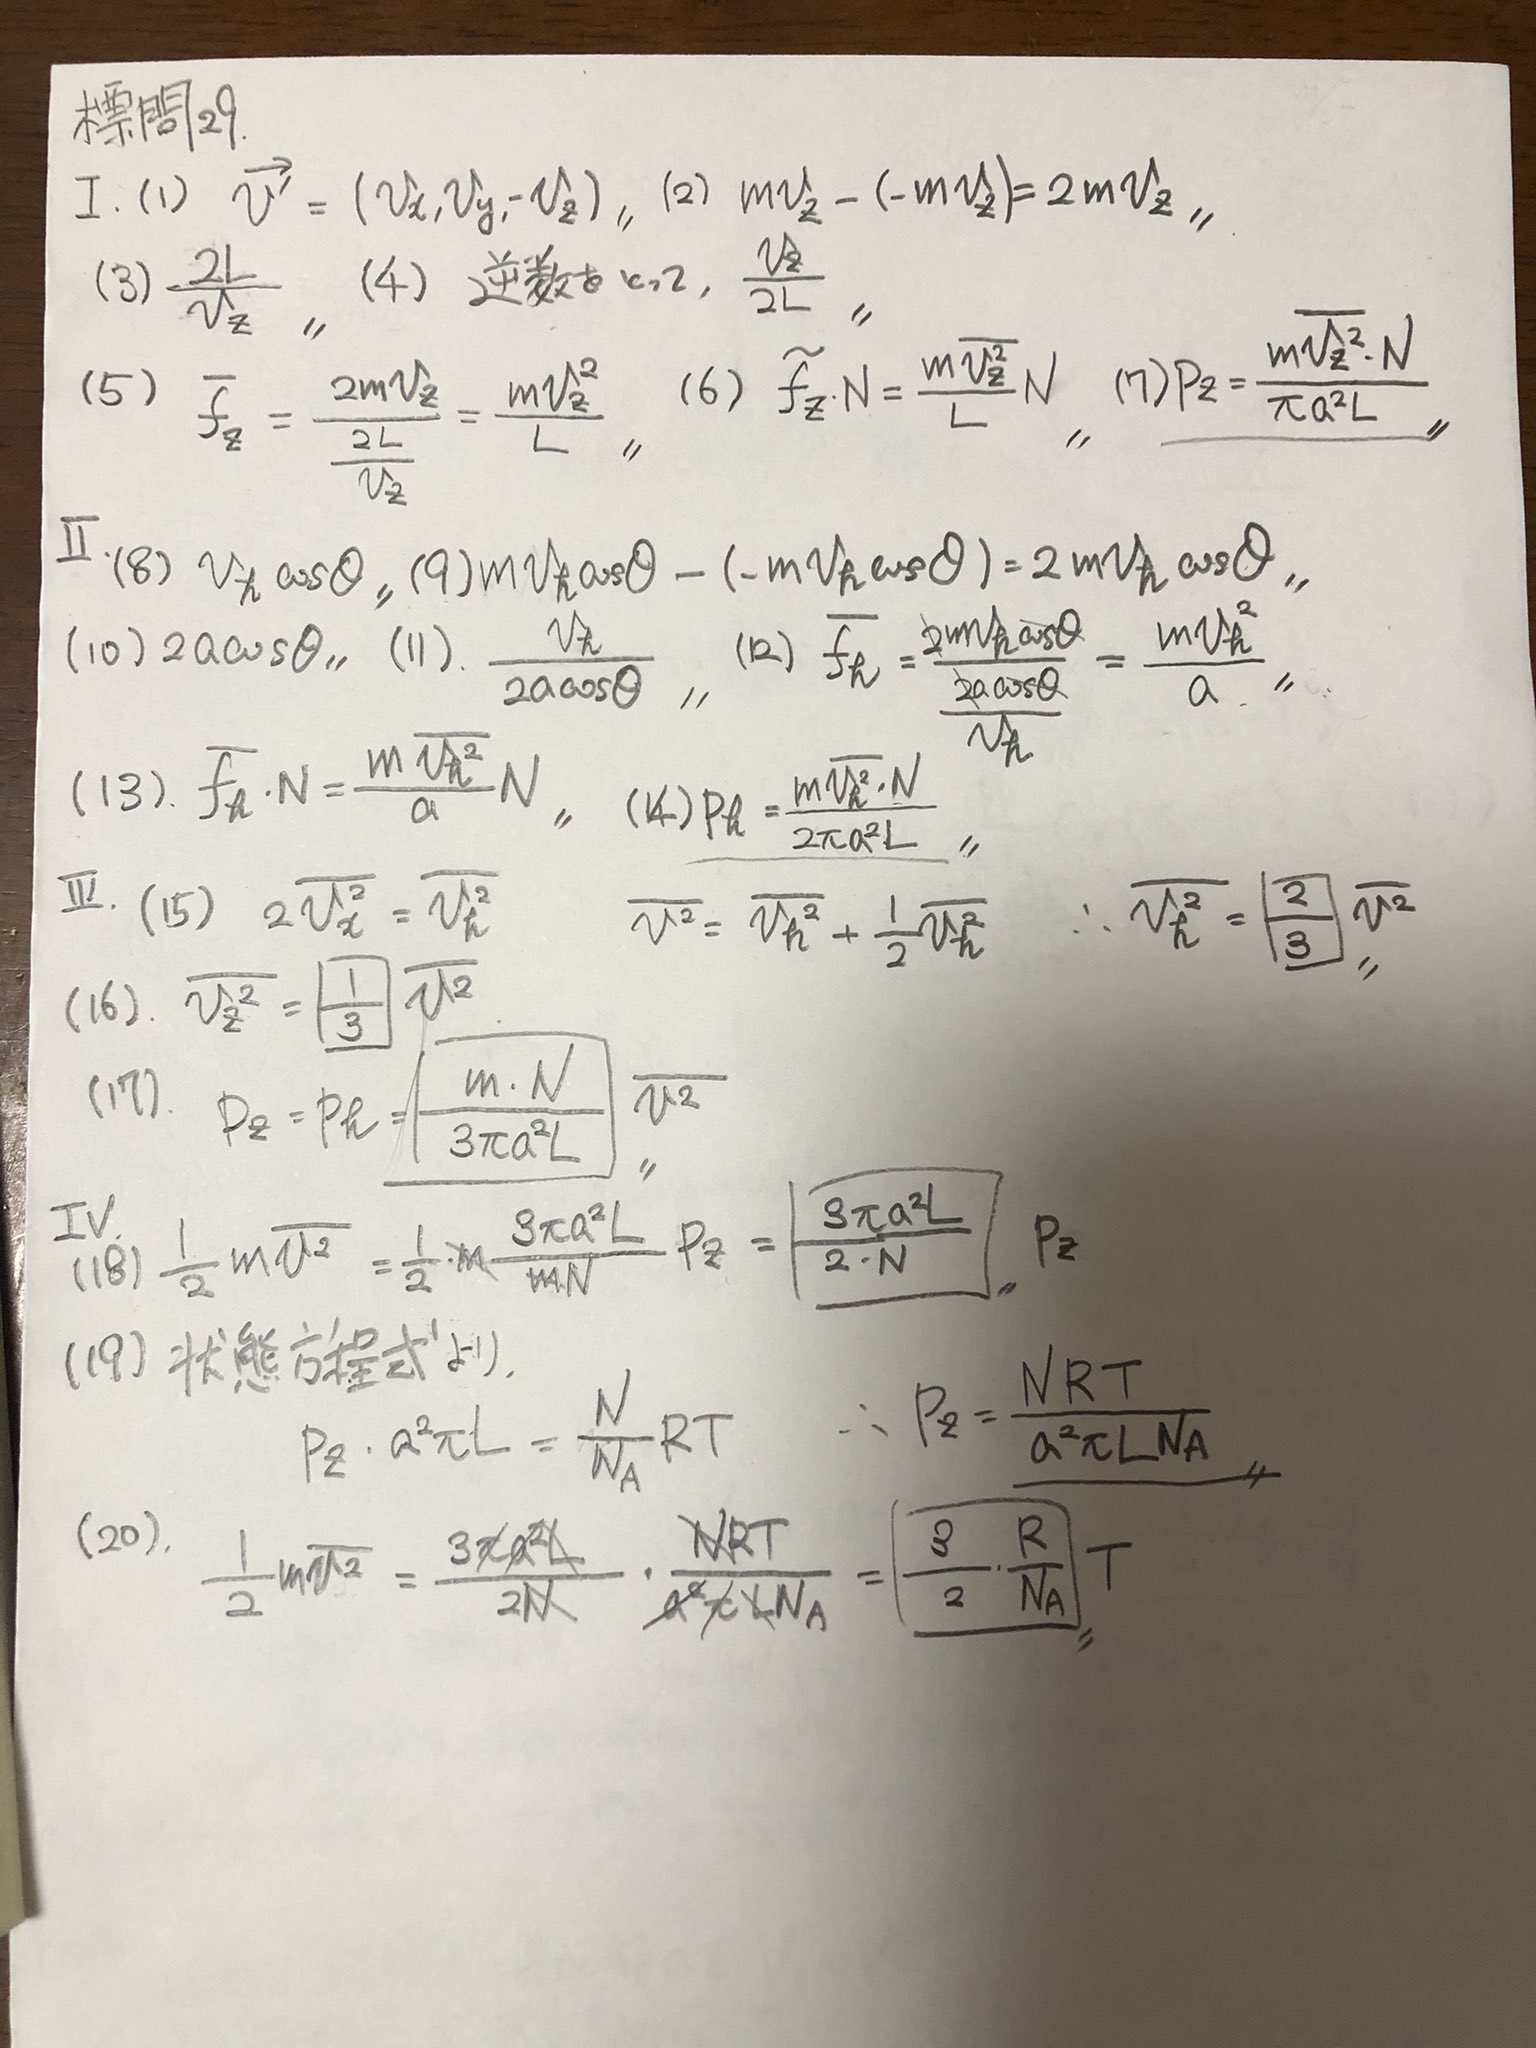 標問29.
I. (1) $\vec{v'} = (v_x, v_y, -v_z)$〃 (2) $mv_z - (-mv_z) = 2mv_z$〃
(3) $\frac{2L}{v_z}$〃 (4) 逆数をとって, $\frac{v_z}{2L}$〃
(5) $\overline{f_z} = \frac{2mv_z}{\frac{2L}{v_z}} = \frac{mv_z^2}{L}$〃 (6) $\widetilde{f_z} \cdot N = \frac{m\overline{v_z^2}}{L}N$〃 (7) $p_z = \frac{m\overline{v_z^2} \cdot N}{\pi a^2 L}$〃
II. (8) $v_h \cos\theta$〃 (9) $mv_h\cos\theta - (-mv_h\cos\theta) = 2mv_h\cos\theta$〃
(10) $2a\cos\theta$〃 (11). $\frac{v_h}{2a\cos\theta}$〃 (12) $\overline{f_h} = \frac{2mv_h\cos\theta}{\frac{2a\cos\theta}{v_h}} = \frac{mv_h^2}{a}$〃
(13). $\overline{f_h} \cdot N = \frac{m\overline{v_h^2}}{a}N$〃 (14) $p_h = \frac{m\overline{v_h^2} \cdot N}{2\pi a^2 L}$〃
III. (15) $2\overline{v_x^2} = \overline{v_h^2}$ $\overline{v^2} = \overline{v_h^2} + \frac{1}{2}\overline{v_h^2}$ ∴ $\overline{v_h^2} = \boxed{\frac{2}{3}}\overline{v^2}$〃
(16). $\overline{v_z^2} = \boxed{\frac{1}{3}}\overline{v^2}$
(17). $p_z = p_h = \boxed{\frac{m \cdot N}{3\pi a^2 L}}\overline{v^2}$〃
IV.
(18) $\frac{1}{2}m\overline{v^2} = \frac{1}{2} \cdot m\frac{3\pi a^2 L}{mN}p_z = \boxed{\frac{3\pi a^2 L}{2 \cdot N}}$〃$p_z$
(19) 状態方程式より,
$p_z \cdot a^2\pi L = \frac{N}{N_A}RT$ ∴ $p_z = \frac{NRT}{a^2\pi L N_A}$〃
(20). $\frac{1}{2}m\overline{v^2} = \frac{3\pi a^2 L}{2N} \cdot \frac{NRT}{a^2\pi L N_A} = \boxed{\frac{3}{2} \cdot \frac{R}{N_A}}T$〃